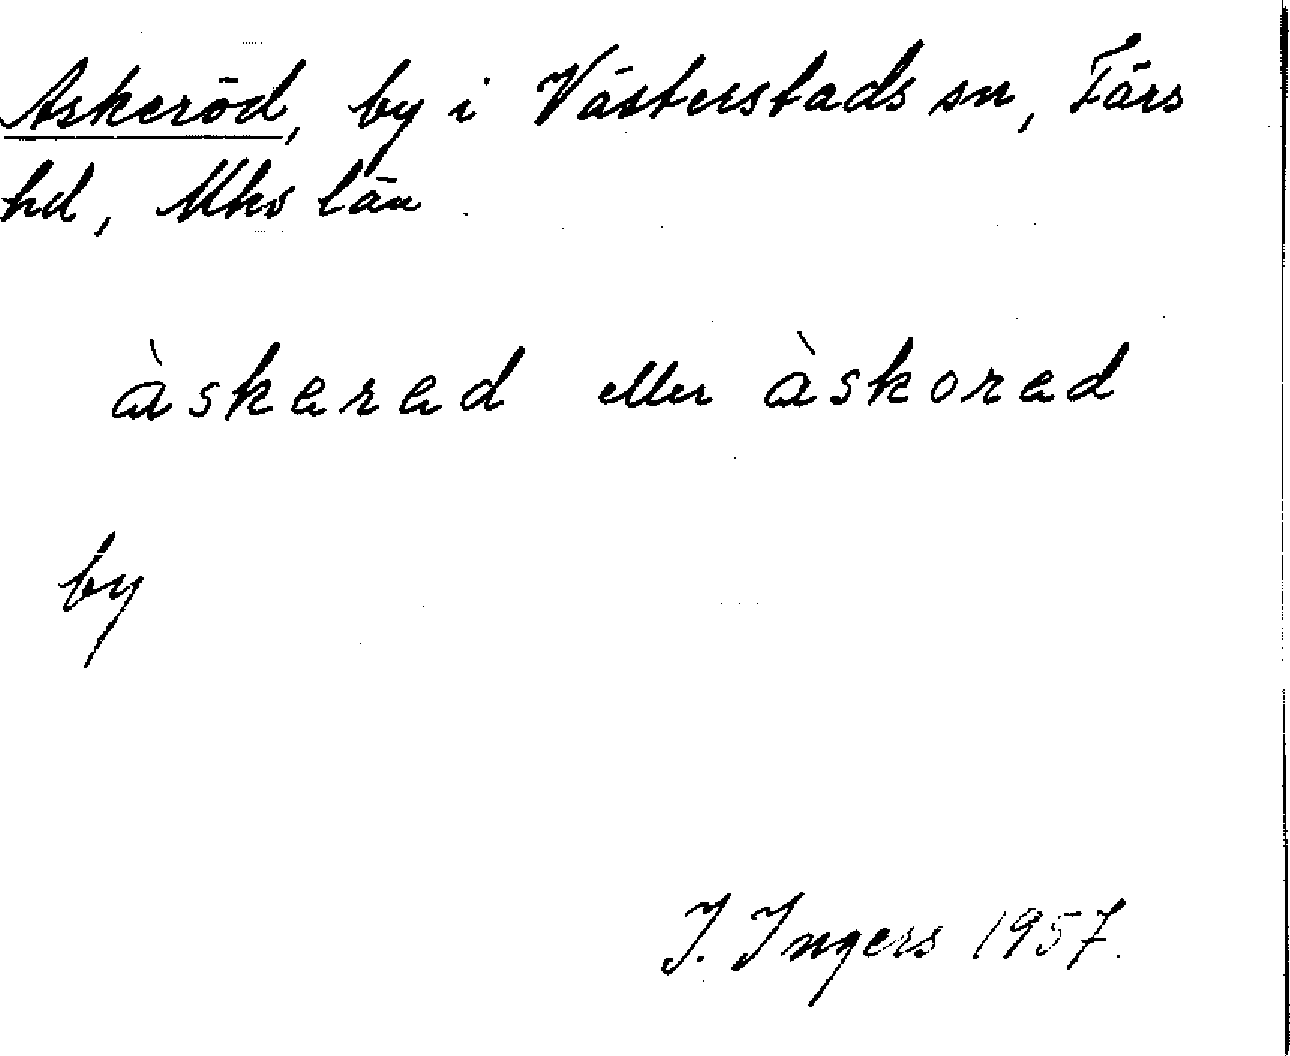 Askeröd, by i Västerstads sn, Färs
hd, Mhs län
àskarad eller àskorad
by
J. Ingers 1957.